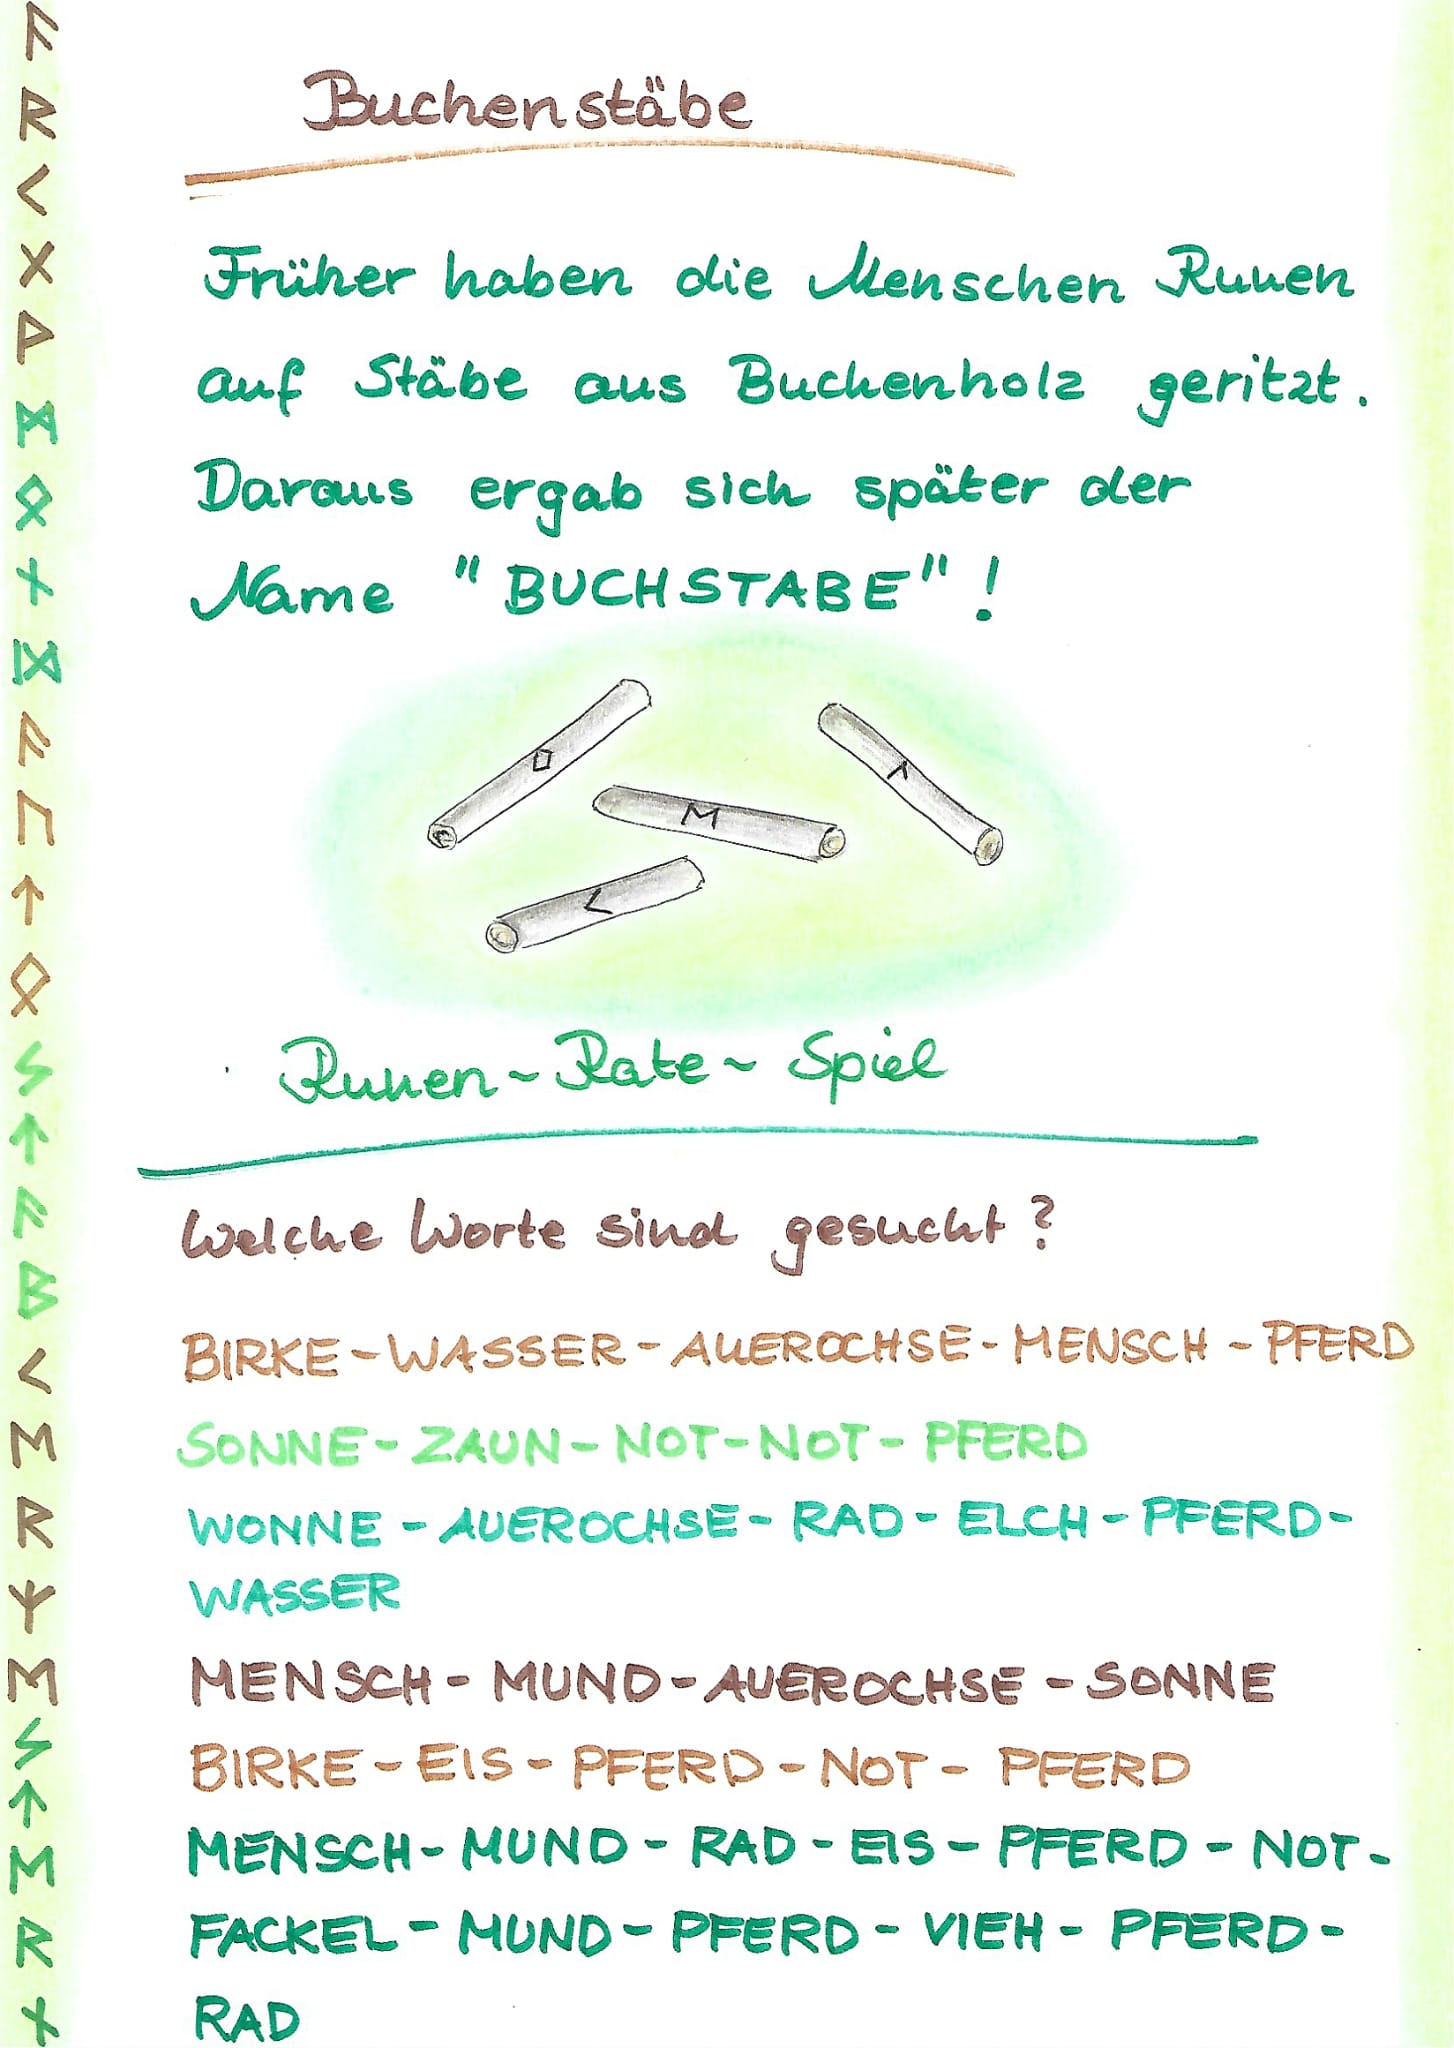 ᚨᚱᚲᚷᚹ
ᛗᛟᚾᛞ
ᚨᚢᛏᛟ
ᛋᛏᚨᛒ
ᚲᛖᚱᛉᛖ
ᛋᛏᛖᚱᚾ
Buchenstäbe
Früher haben die Menschen Runen
auf Stäbe aus Buchenholz geritzt.
Daraus ergab sich später der
Name "BUCHSTABE"!
ᛖ
ᚲ
Runen~Rate~Spiel
Welche Worte sind gesucht?
BIRKE-WASSER-AUEROCHSE-MENSCH-PFERD
SONNE-ZAUN-NOT-NOT-PFERD
WONNE-AUEROCHSE-RAD-ELCH-PFERD-
WASSER
MENSCH-MUND-AUEROCHSE-SONNE
BIRKE-EIS-PFERD-NOT-PFERD
MENSCH-MUND-RAD-EIS-PFERD-NOT-
FACKEL-MUND-PFERD-VIEH-PFERD-
RAD